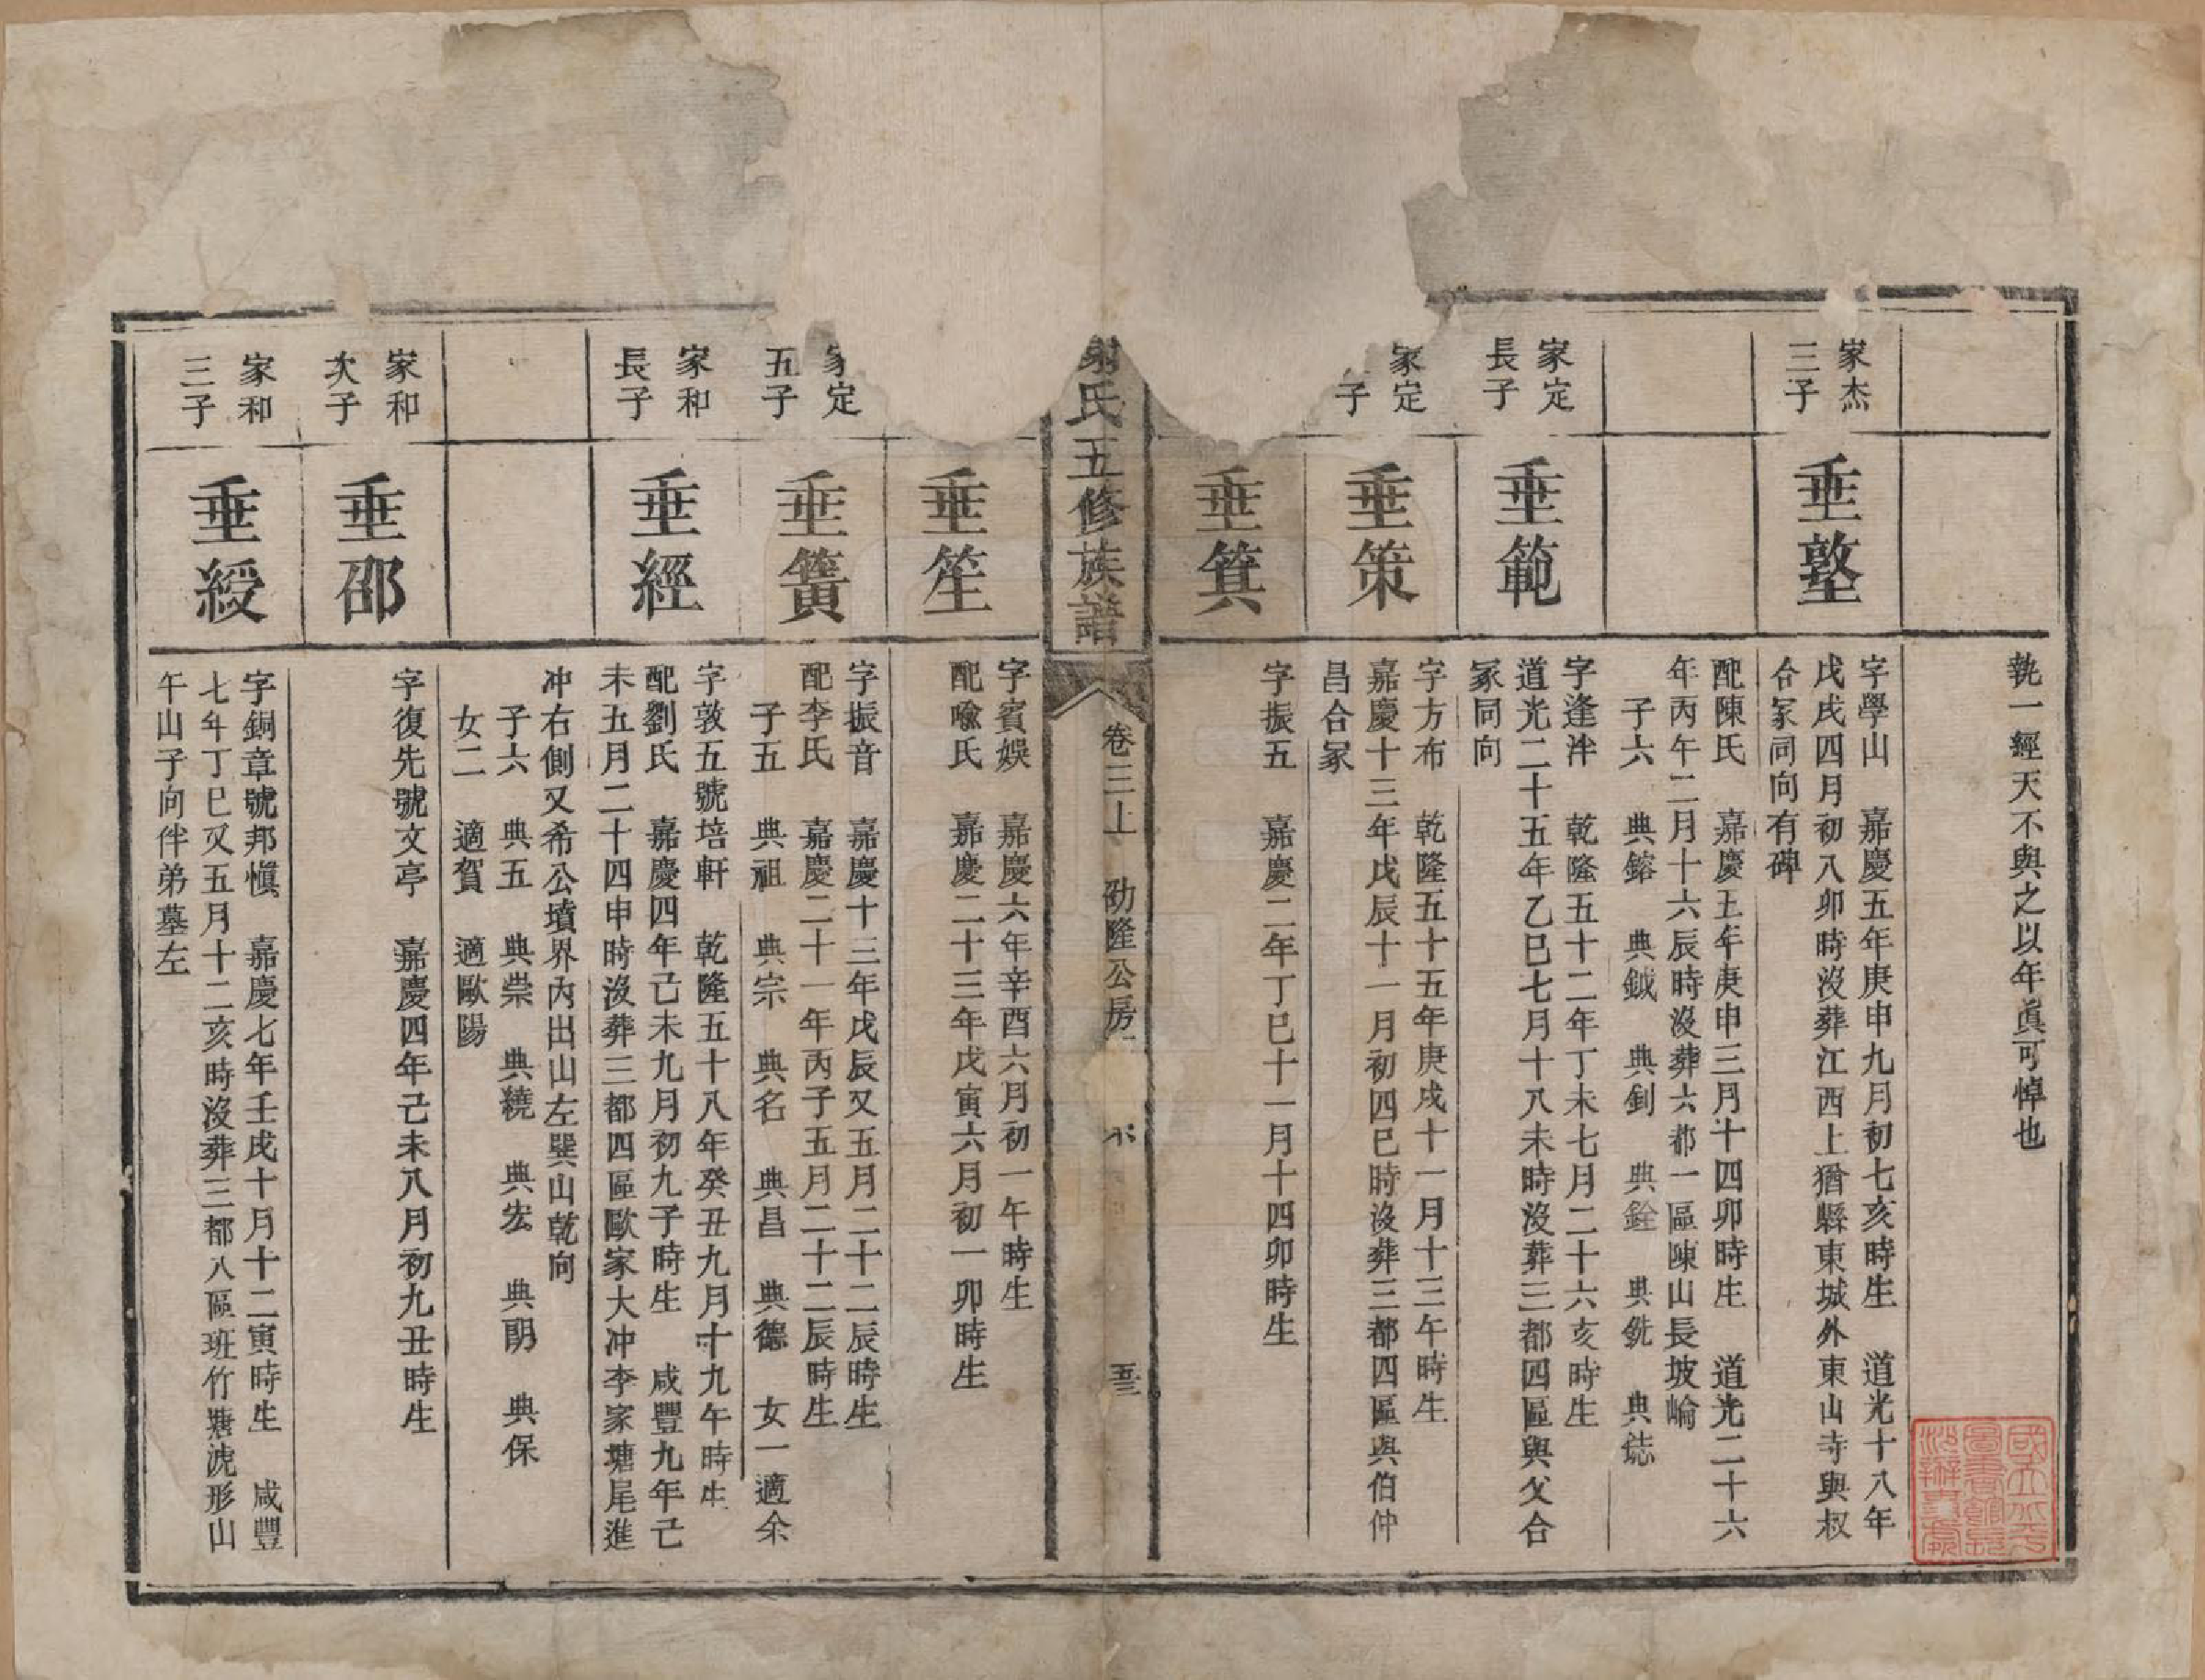 執一經天不與之以年眞可悼也
家杰
三子
垂塾
字學山　嘉慶五年庚申九月初七亥時生　道光十八年
戊戌四月初八卯時沒葬江西上猶縣東城外東山寺與叔
合冢同向有碑
配陳氏　嘉慶五年庚申三月十四卯時生　道光二十六
年丙午二月十六辰時沒葬六都一區陳山長坡崙
子六　典鎔　典鉞　典釗　典銓　典銑　典鋕
家定
長子
垂範
字逢泮　乾隆五十二年丁未七月二十六亥時生
道光二十五年乙巳七月十八未時沒葬三都四區與父合
冢同向
家定
子
垂策
字方布　乾隆五十五年庚戌十一月十三午時生
嘉慶十三年戊辰十一月初四巳時沒葬三都四區與伯仲
昌合冢
垂箕
字振五　嘉慶二年丁巳十一月十四卯時生
氏五修族譜
卷三上　劭隆公房
垂笙
字賓娛　嘉慶六年辛酉六月初一午時生
配喻氏　嘉慶二十三年戊寅六月初一卯時生
家定
五子
垂簧
字振音　嘉慶十三年戊辰又五月二十二辰時生
配李氏　嘉慶二十一年丙子五月二十二辰時生
子五　典祖　典宗　典名　典昌　典德　女一適余
家和
長子
垂經
字敦五號培軒　乾隆五十八年癸丑九月十九午時生
配劉氏　嘉慶四年己未九月初九子時生　咸豐九年己
未五月二十四申時沒葬三都四區歐家大冲李家塘尾進
冲右側又希公墳界內出山左巽山乾向
子六　典五　典崇　典繞　典宏　典朗　典保
女二　適賀　適歐陽
家和
次子
垂邵
字復先號文亭　嘉慶四年己未八月初九丑時生
家和
三子
垂綬
字銅章號邦愼　嘉慶七年壬戌十月十二寅時生　咸豐
七年丁巳又五月十二亥時沒葬三都八區班竹塘虎形山
午山子向伴弟墓左